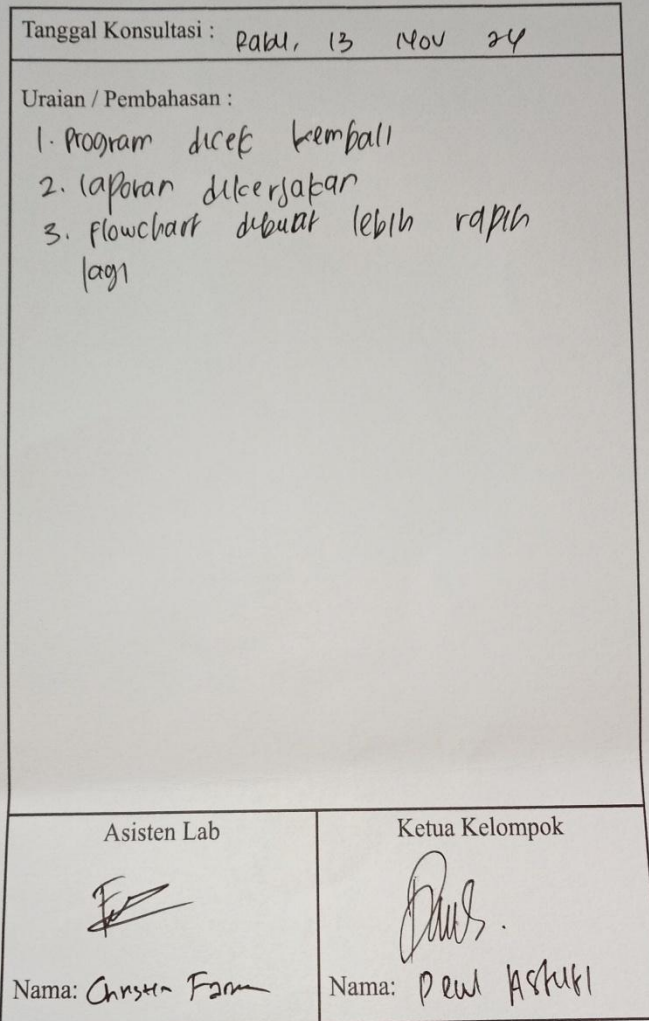 Tanggal Konsultasi : Rabu, 13 Nov 24
Uraian / Pembahasan :
1. Program dicek kembali
2. laporan dikerjakan
3. flowchart dibuat lebih rapih
lagi
Asisten Lab
Ketua Kelompok
Nama: Christin
Nama: Dewi Astuti